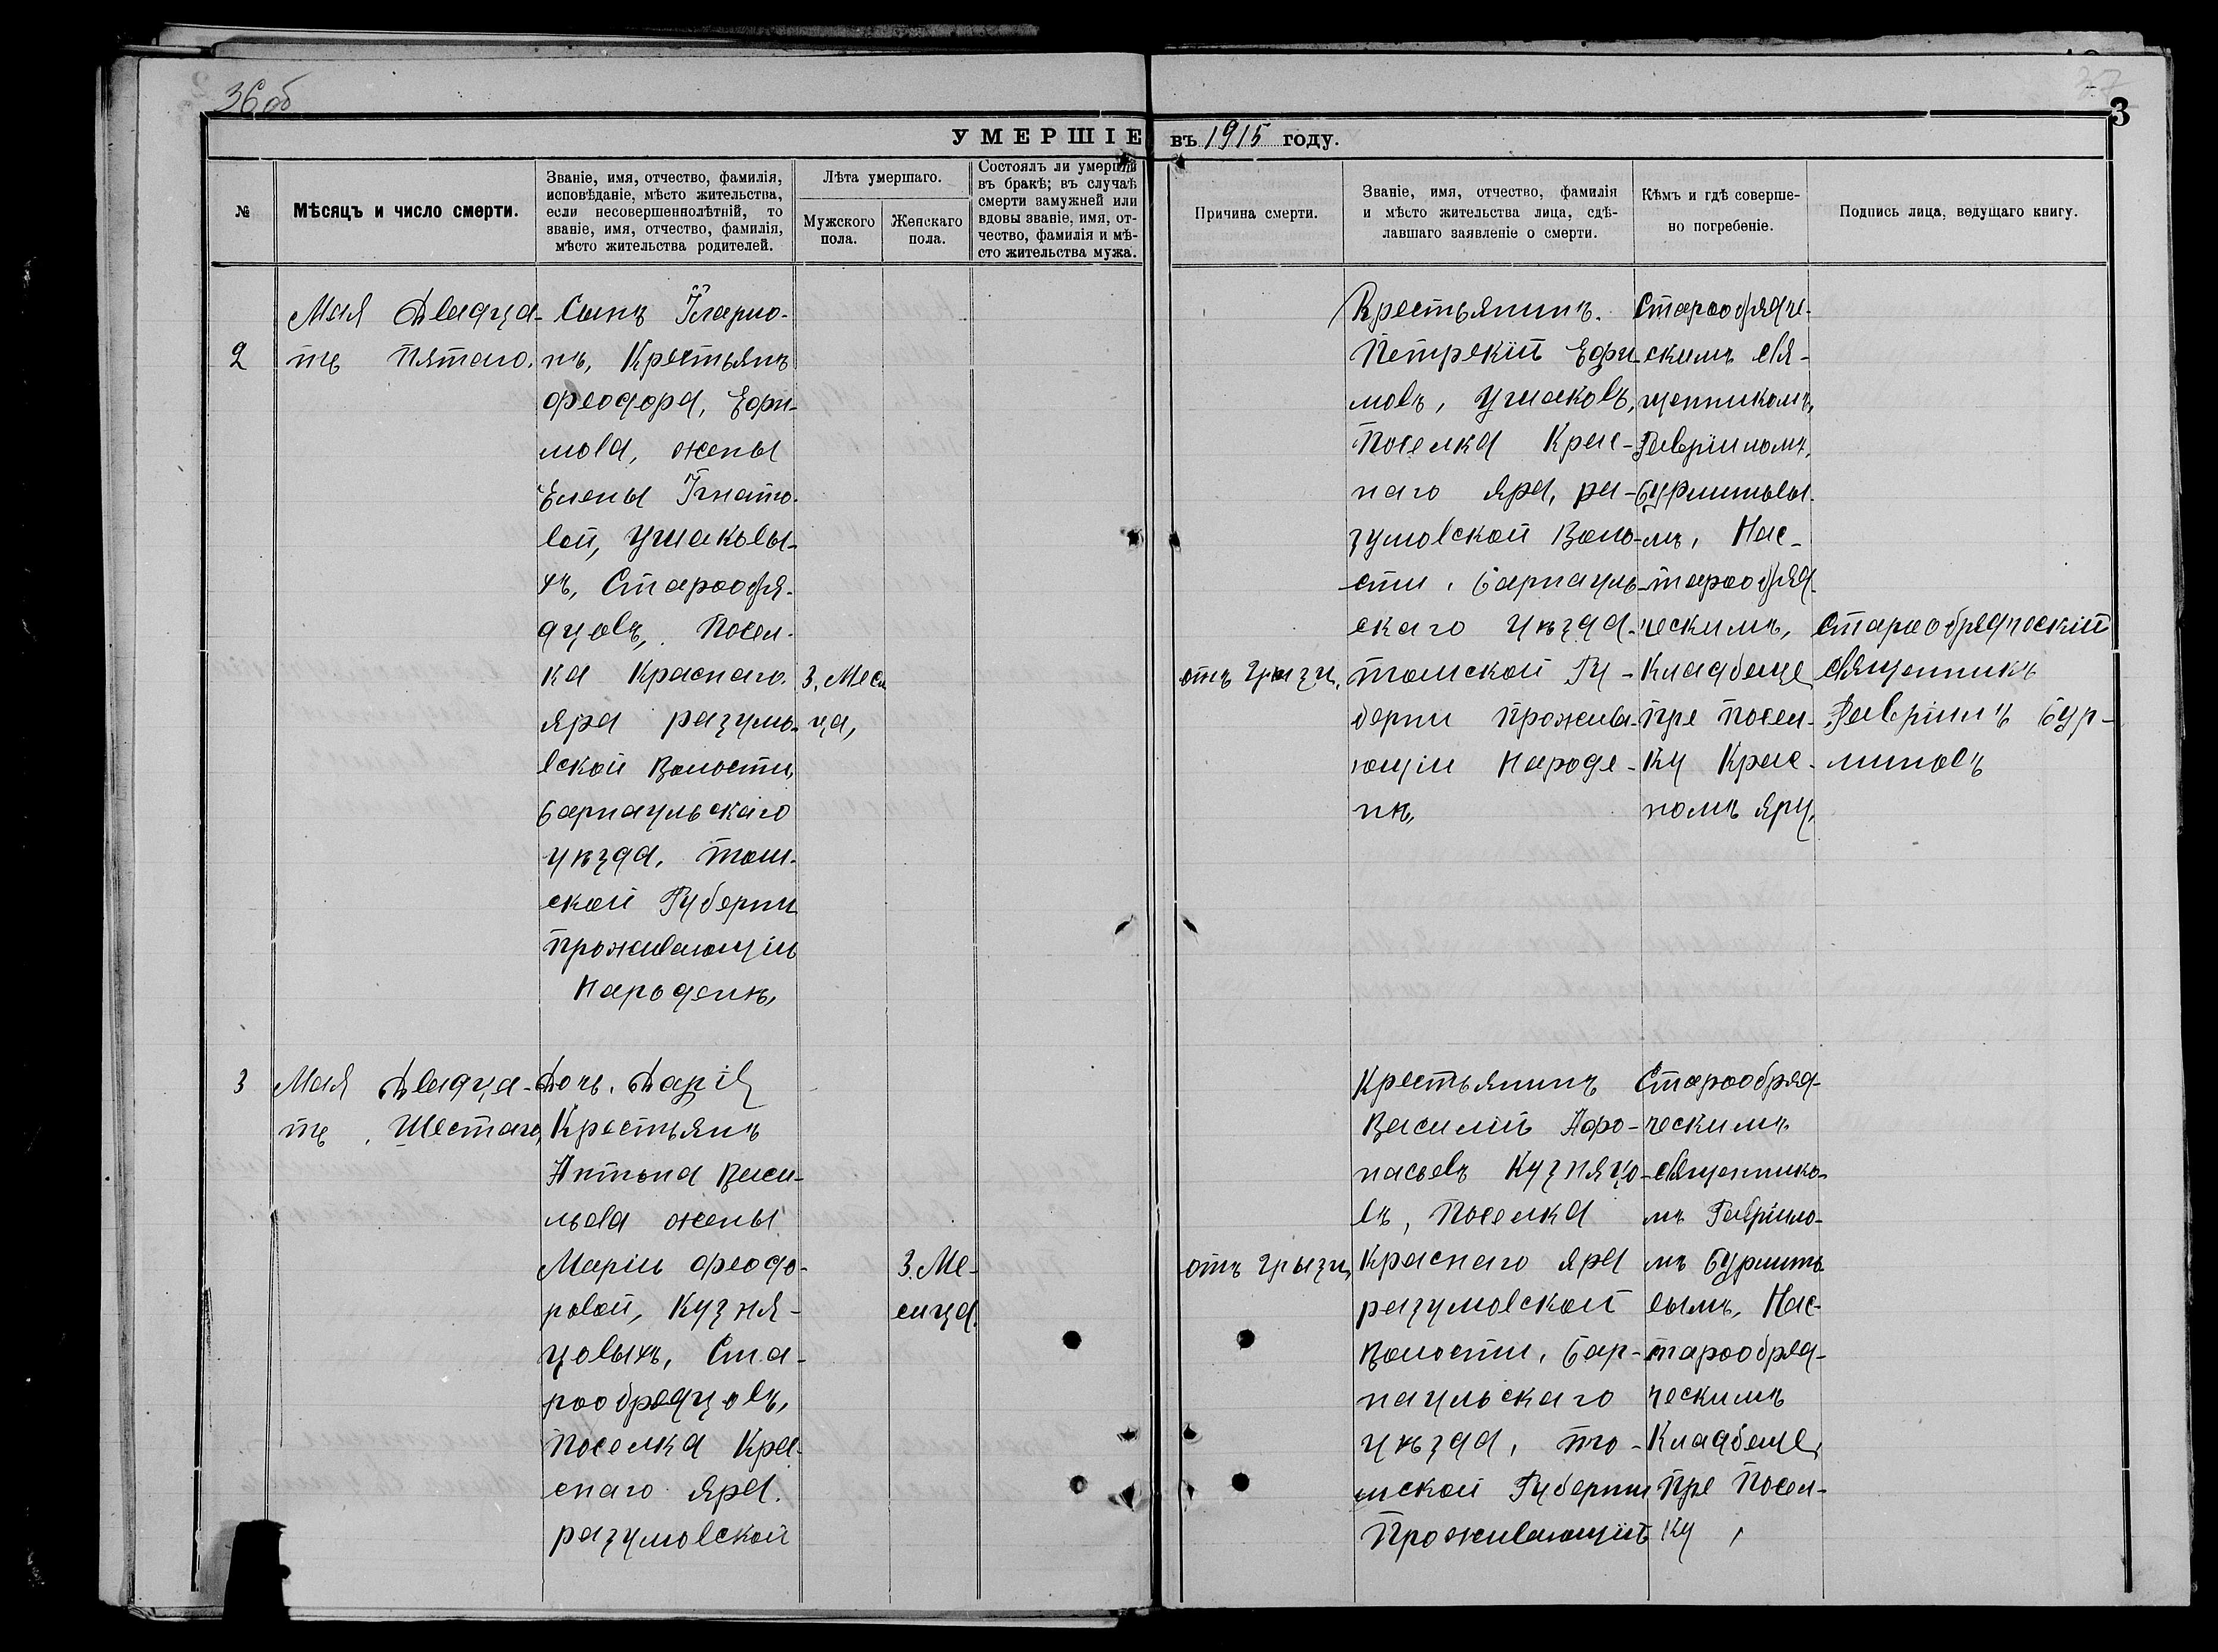 36 об
37
3
УМЕРШІЕ въ 1915 году.
№
Мѣсяцъ и число смерти.
Званіе, имя, отчество, фамилія,
исповѣданіе, мѣсто жительства,
если несовершеннолѣтній, то
званіе, имя, отчество, фамилія,
мѣсто жительства родителей.
Лѣта умершаго.
Мужского
пола.
Женскаго
пола.
Состоялъ ли умершій
въ бракѣ; въ случаѣ
смерти замужней или
вдовы званіе, имя, от-
чество, фамилія и мѣ-
сто жительства мужа.
Причина смерти.
Званіе, имя, отчество, фамилія
и мѣсто жительства лица, сдѣ-
лавшаго заявленіе о смерти.
Кѣмъ и гдѣ соверше-
но погребеніе.
Подпись лица, ведущаго книгу.
2
Мая Двадца-
ть Пятаго.
Сынъ Іларио-
нъ, Крестьянъ
Феодора, Ефи-
мова, жены
Елены Ігнато-
вой, Ушаковы-
хъ, Старообря-
дцовъ, Посел-
ка Краснаго
Яра разумо-
вской Волости,
Барнаульскаго
уѣзда, Том-
ской Губерни
Проживающіи
Народенѣ,
3. Меси
ца,
отъ Грызи,
Крестьянинъ.
Петрекій Ефи-
мовъ, Ушаковъ,
Поселка Крас-
наго Яра, ра-
зумовской Воло-
сти, Барнауль-
скаго уѣзда
томской Гу-
берни Прожива-
ющіи Народе-
нѣ,
Старообрядче-
скимъ Свя-
щенникомъ,
Гаврииломъ,
Бурмитовы-
мъ, Нас-
тарообряд-
ческимъ,
Кладбеще
Пре Посел-
Ку Крас-
номъ Яру,
Старообрядческій
священникъ
Гавріилъ Бур-
митовъ
3
Мая Двадца-
ть Шестаго,
Дочь, Дарія
Крестьянъ
Антона Васи-
льева жены
Маріи Феодо-
ровой, Кузня-
цовыхъ, Ста-
рообрядцовъ,
Поселка Кра-
снаго Яра.
разумовской
3. Ме-
сица.
отъ Грызи,
Крестьянинъ
Василій Афо-
насьевъ Кузняцо-
въ, Поселка
Краснаго Яра
разумовской
Волости, Бар-
наульскаго
уѣзда, то-
мской Губерни
Проживающій
Старообряд-
ческимъ
священнико-
мъ Гавріило-
мъ Бурмито-
вымъ, Нас-
тарообряд-
ческимъ
Кладбеще,
Пре Посел-
Ку